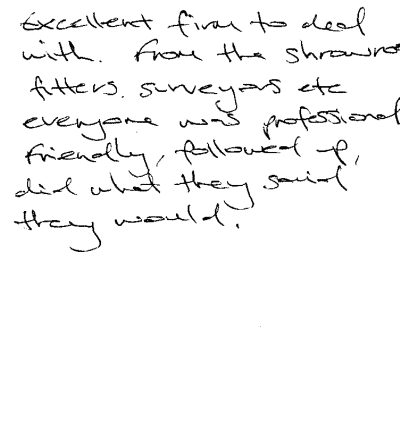 Excellent firm to deal
with. From the showro
fitters. surveyors etc
everyone was professional
friendly, followed up,
did what they said
they would.